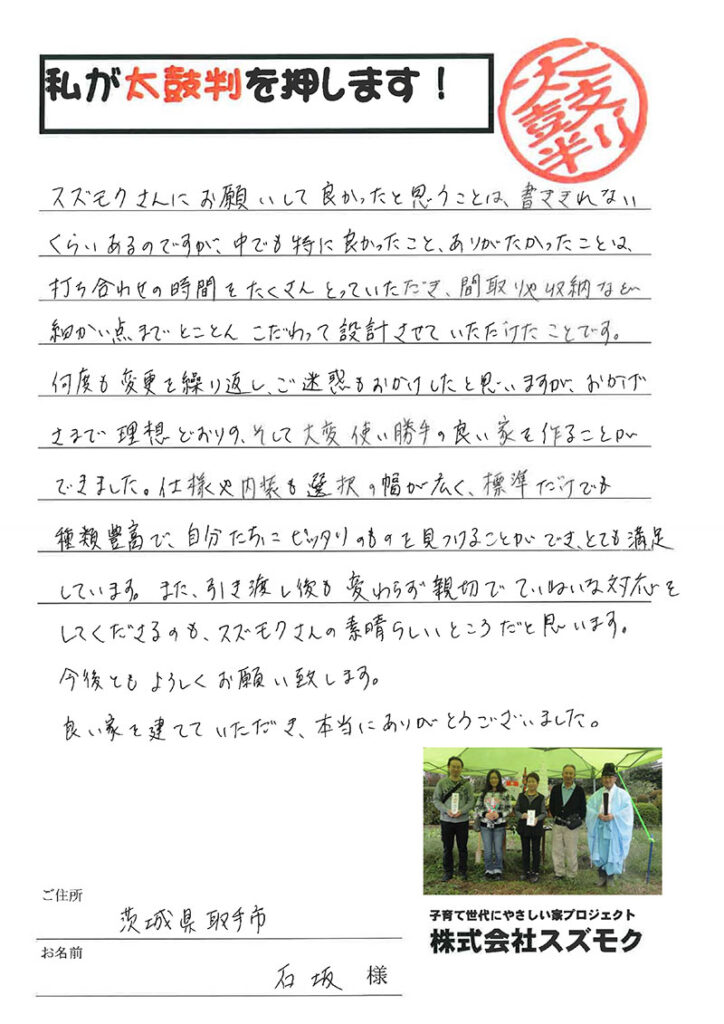 私が太鼓判を押します！
太鼓判
スズモクさんにお願いして良かったと思うことは、書ききれない
くらいあるのですが、中でも特に良かったこと、ありがたかったことは、
打ち合わせの時間をたくさんとっていただき、間取りや収納など
細かい点までとことんこだわって設計させていただけたことです。
何度も変更を繰り返し、ご迷惑もおかけしたと思いますが、おかげ
さまで理想どおりの、そして大変使い勝手の良い家を作ることが
できました。仕様や内装も選択の幅が広く、標準だけでも
種類豊富で、自分たちにピッタリのものを見つけることができ、とても満足
しています。また、引き渡し後も変わらず親切でていねいな対応を
してくださるのも、スズモクさんの素晴らしいところだと思います。
今後ともよろしくお願い致します。
良い家を建てていただき、本当にありがとうございました。
ご住所
茨城県取手市
お名前
石坂 様
子育て世代にやさしい家プロジェクト
株式会社スズモク